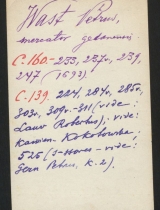 Wast Petrus,
mercator gedanen.
C. 160.- 233, 237v, 239,
247 (1693)
C. 139. 224, 284, 285v,
303v, 309v-311 (vide:
Laur Robertus), vide:
Kokobowska,
525 (vide:
Petrus, k. 2).